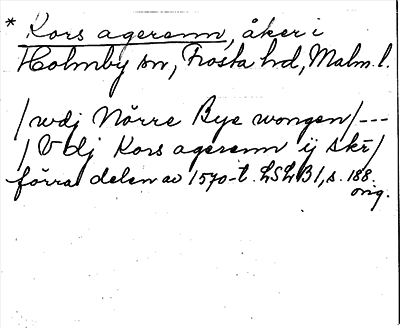 * Kors agerenn, åker i
Holmby sn, Frosta hd, Malm. l.
/ wdj Nörre Bye wongen /---
/ Vdj Kors agerenn ij skr /
förra delen av 1570-t. LSLB 1, s. 188.
orig.